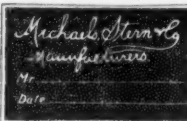 Michaels, Stern & Co
Manufacturers.
Mr
Date